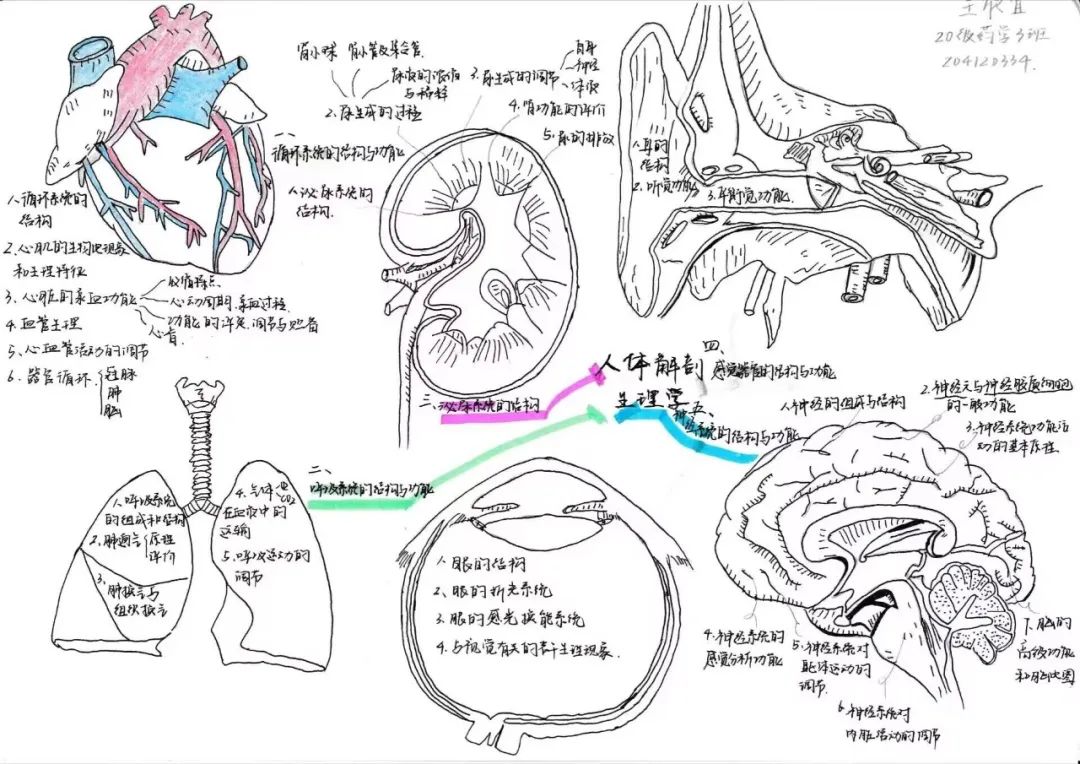 20级药学3班
204120334.
人体解剖
生理学
一、
循环系统的结构与功能
1.循环系统的
结构
2.心肌的生物电现象
和生理特征
3.心脏的泵血功能
收缩特点.
心动周期.泵血过程.
功能的评定.调节与贮备
心音.
4.血管生理
5.心血管活动的调节
6.器官循环.
冠脉
肺
脑
二、
呼吸系统的结构与功能
1.呼吸系统
的组成和结构
2.肺通气
原理
评价
3.
肺换气与
组织换气
4.气体
O₂
CO₂
在血液中的
运输
5.呼吸运动的
调节
三、泌尿系统的结构
1.泌尿系统的
结构.
肾小球 肾小管及集合管
尿液的浓缩
与稀释
2.尿生成的过程
3.尿生成的调节
自身
神经
体液
4.肾功能的评价
5.尿的排放
四、
感觉器官的结构与功能
1.耳的
结构
2.听觉功能
3.平衡觉功能.
1.眼的结构
2.眼的折光系统
3.眼的感光换能系统
4.与视觉有关的若干生理现象.
五、
神经系统的结构与功能
1.神经的组成与结构
2.神经元与神经胶质细胞
的一般功能
3.神经系统功能活
动的基本原理
4.神经系统的
感觉分析功能
5.神经系统对
躯体运动的
调节.
6.神经系统对
内脏活动的调节
7.脑的
高级功能
和脑电图